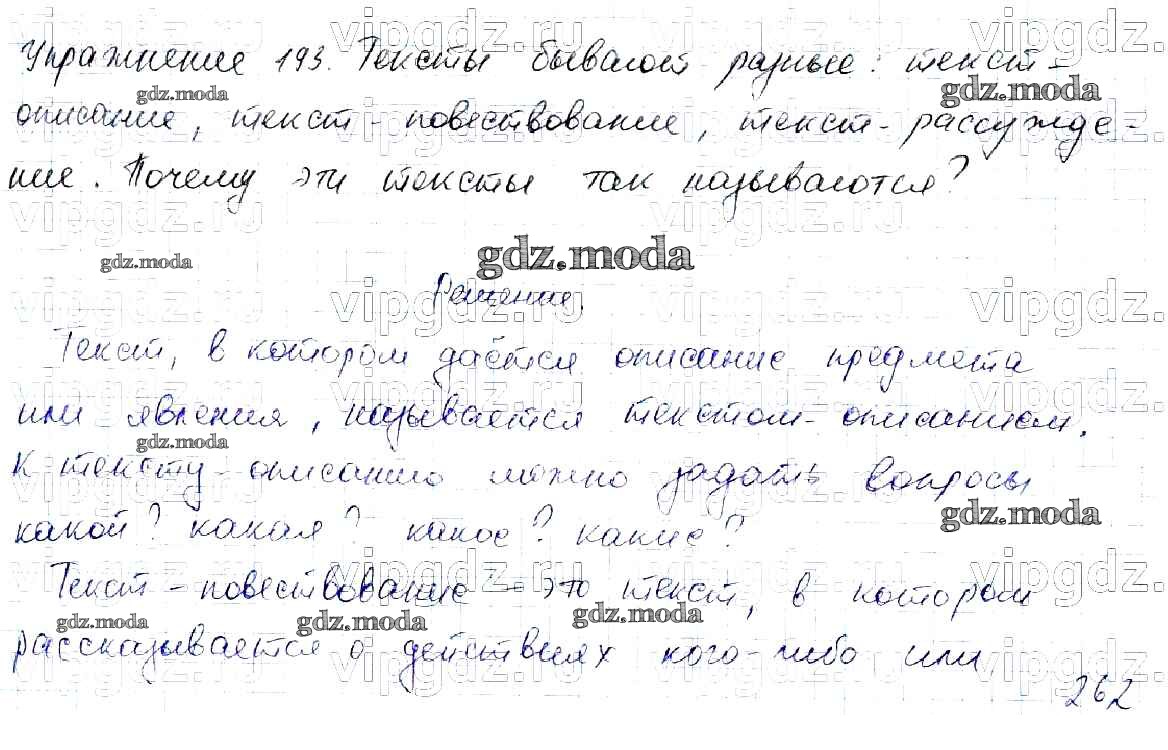 Упражнение 193. Тексты бывают разные: текст-
описание, текст-повествование, текст-рассужде-
ние. Почему эти тексты так называются?
gdz.moda
Решение.
Текст, в котором даётся описание предмета
или явления, называется текстом-описанием.
К тексту-описанию можно задать вопросы
какой? какая? какое? какие?
Текст-повествование - это текст, в котором
рассказывается о действиях кого-либо или
262